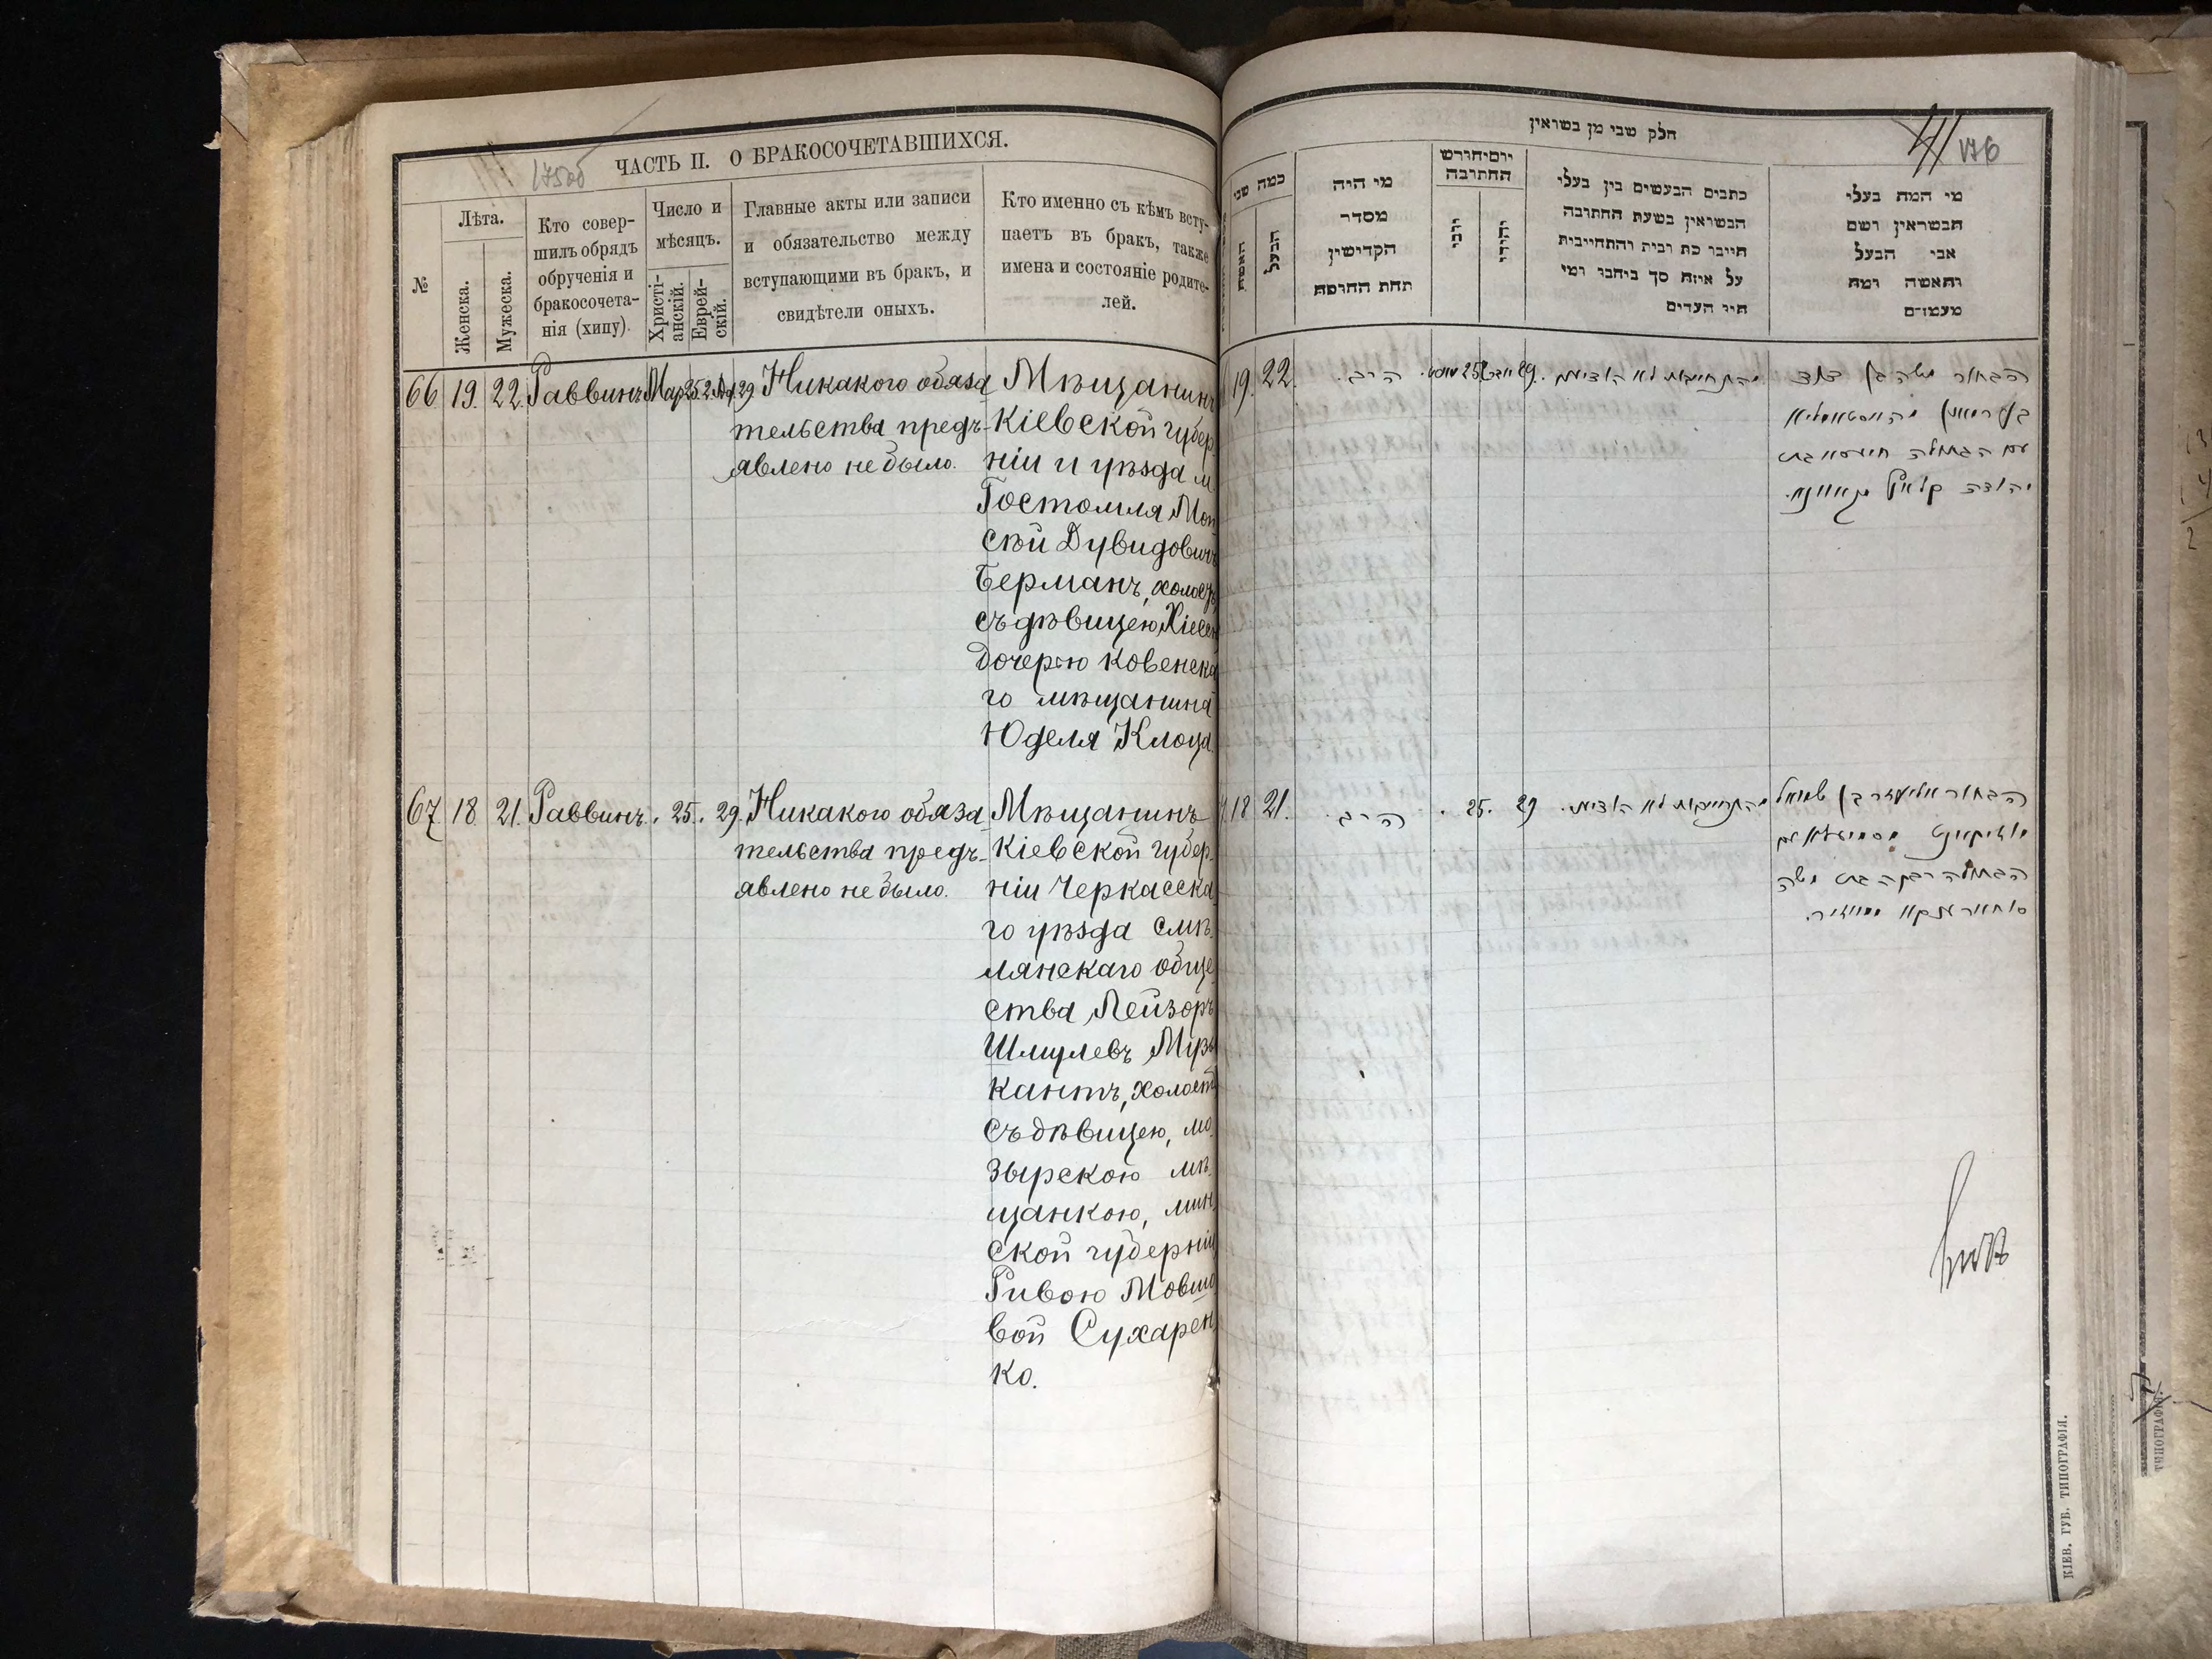 ЧАСТЬ II. О БРАКОСОЧЕТАВШИХСЯ.
175об
№
Лѣта.
Женска.
Мужеска.
Кто совер-
шилъ обрядъ
обрученія и
бракосочета-
нія (хипу).
Число и
мѣсяцъ.
Христі-
анскій.
Еврей-
скій.
Главные акты или записи
и обязательство между
вступающими въ бракъ, и
свидѣтели оныхъ.
Кто именно съ кѣмъ всту-
паетъ въ бракъ, также
имена и состояніе родите-
лей.
66. 19. 22. Раввинъ Мар. 25. 29 Никакого обяза
тельства предъ-
явлено не было.
Мѣщанинъ
Кіевской губер
ніи и уѣзда м.
Гостомля Мов
Дувидовичъ
Берманъ, холос
съ дѣвицею
дочерью ковенска
го мѣщанина
Юделя Клоца
67 18. 21. Раввинъ. 25. 29. Никакого обяза
тельства предъ-
явлено не было.
Мѣщанинъ
Кіевской губер-
ніи Черкасска
го уѣзда смѣ-
лянскаго обще
ства Лейзоръ
Шмулевъ
кантъ, холост
съ дѣвицею, мо
зырскою мѣ
щанкою, мин
ской губерніи
Ривою Мовшо
вой Сухарен
ко.
חלק שני מן נשואין
176
כמה שני
האשה
הבעל
מי היה
מסדר
הקדישין
תחת החופה
יום וחודש
החתונה
יוני
יהודי
כתבים הנעשים בין בעלי
הנשואין בשעת החתונה
חייבו כת וכית והתחייבות
על איזה סך ביחבו ומי
היו העדים
מי המה בעלי
הנשואין ושם
אבי הבעל
והאשה ומה
מעמדם
19. 22. הרב. 25 29. התחייבות לא הוציאו.
הבחור משה בן דוד
עם הבתולה בת
יהודה קלאץ
18 21. הרב. 25. 29 התחייבות לא הוציאו.
הבחור אליעזר בן שמואל
הבתולה רבקה בת משה
КІЕВ. ГУБ. ТИПОГРАФІЯ.
ТИПОГРАФІЯ.